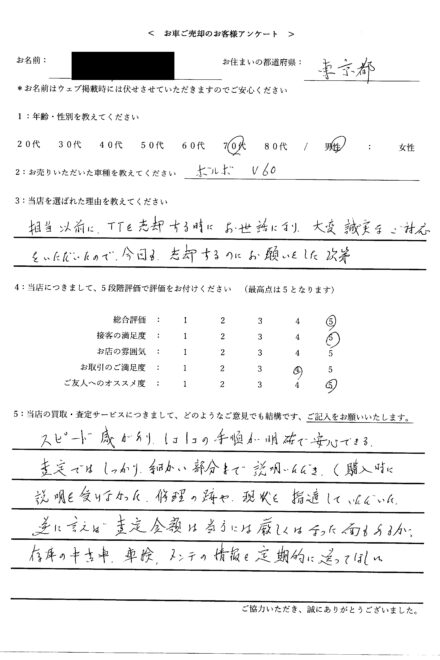 < お車ご売却のお客様アンケート >
お名前： お住まいの都道府県： 東京都
*お名前はウェブ掲載時には伏せさせていただきますのでご安心ください
1：年齢・性別を教えてください
20代 30代 40代 50代 60代 70代 80代 / 男性 ： 女性
2：お売りいただいた車種を教えてください ボルボ V60
3：当店を選ばれた理由を教えてください
担当以前に、TTを売却する時にお世話になり、大変誠実なご対応
をいただいたので、今回も売却するのにお願いをした次第
4：当店につきまして、5段階評価で評価をお付けください （最高点は5となります）
総合評価 ： 1 2 3 4 5
接客の満足度 ： 1 2 3 4 5
お店の雰囲気 ： 1 2 3 4 5
お取引のご満足度 ： 1 2 3 4 5
ご友人へのオススメ度 ： 1 2 3 4 5
5：当店の買取・査定サービスにつきまして、どのようなご意見でも結構です、ご記入をお願いいたします。
スピード感があり、1つ1つの手順が明確で安心できる。
査定ではしっかり、細かい部分まで説明いただき、（購入時に
説明を受けなかった、修理の跡や、現状を指適していただいた
逆に言えば査定金額は当方には厳しくはなった面もあるが、
の中古車、車検、メンテの情報を定期的に送ってほしい
ご協力いただき、誠にありがとうございました。